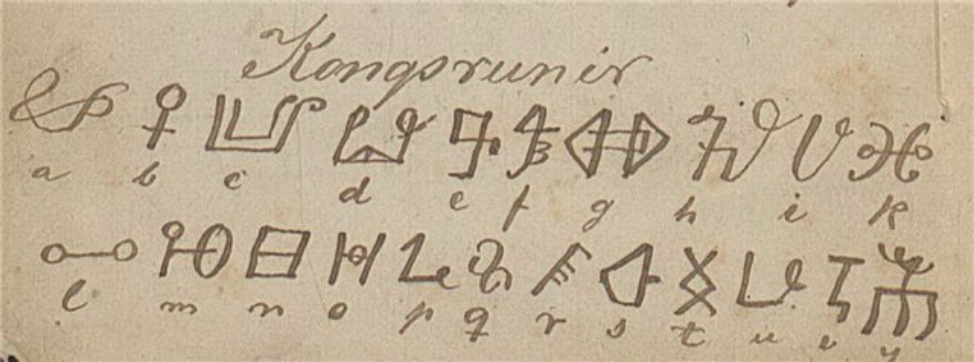 Kongsrunir
a b c d e f g h i k
l m n o p q r s t u v y